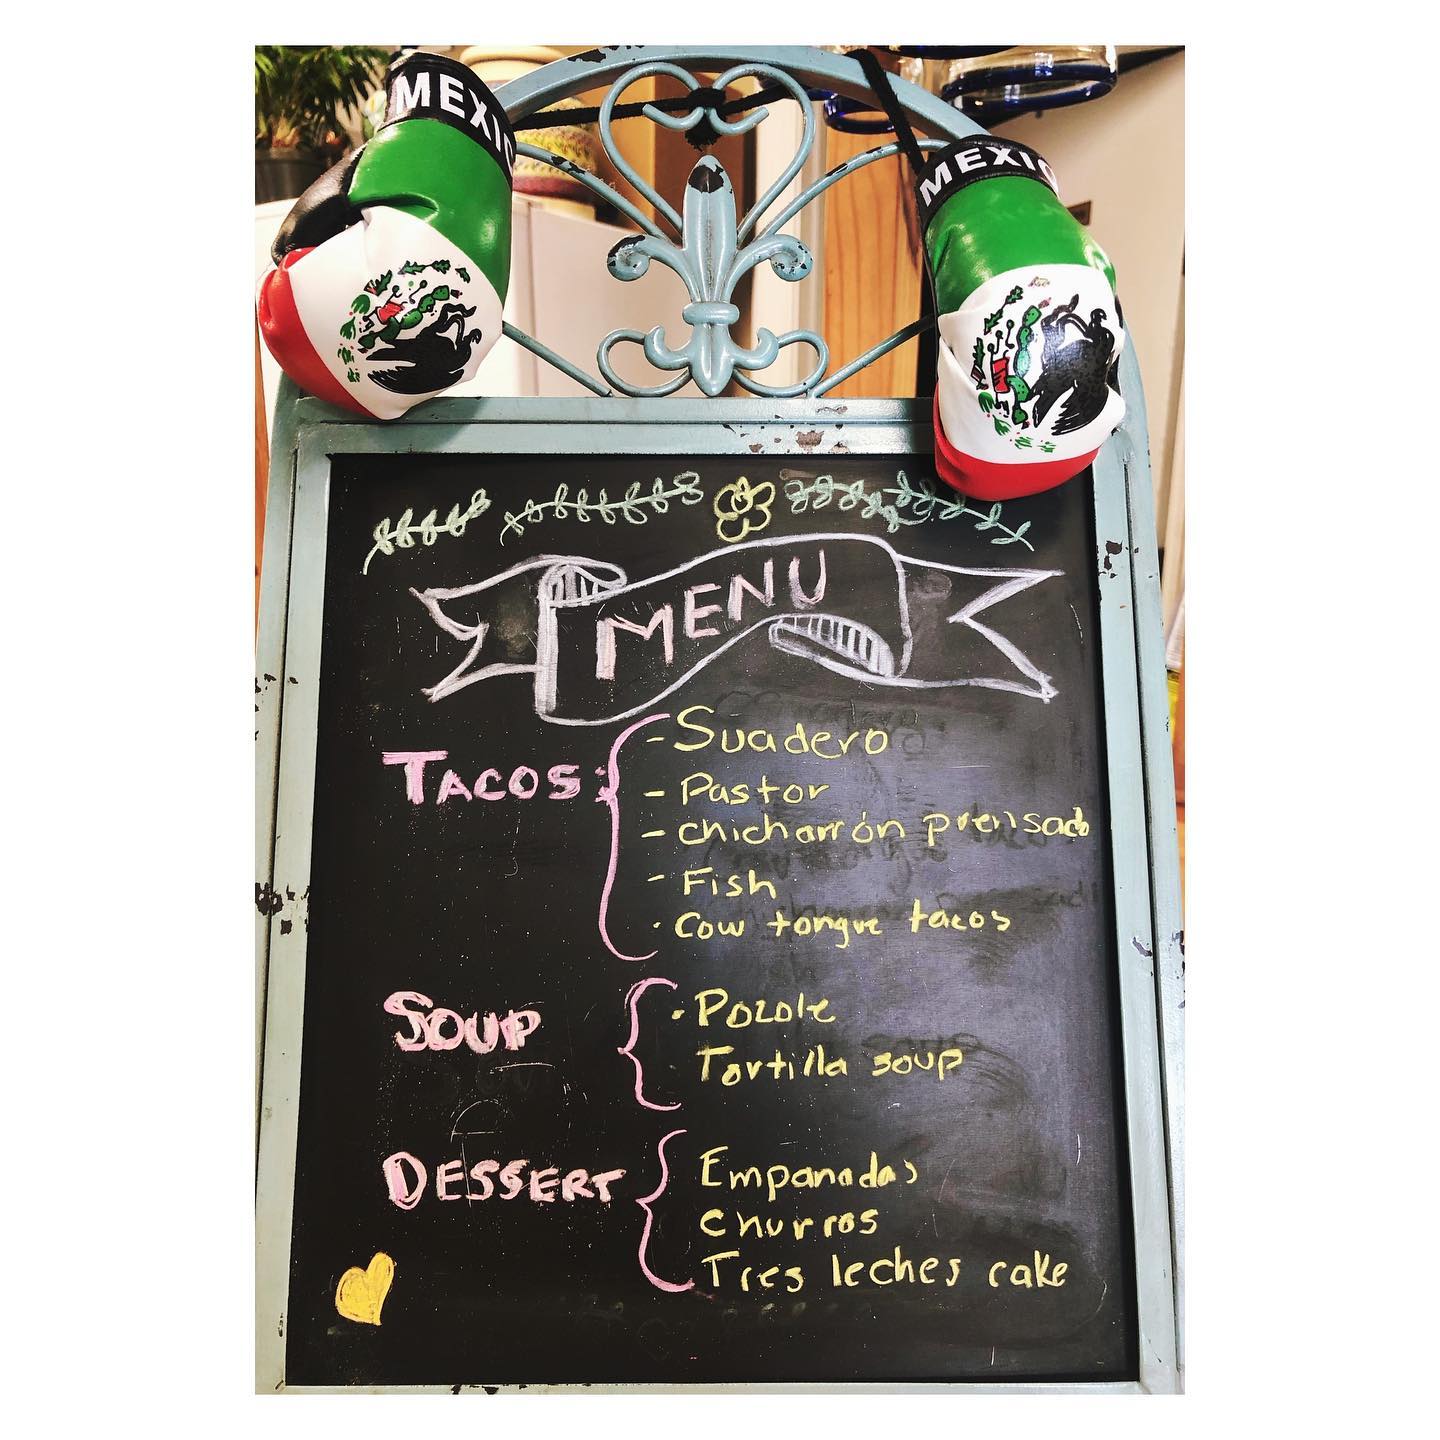 MEXICO
MEXICO
MENU
TACOS:
- Suadero
- Pastor
- chicharrón prensado
- Fish
· Cow tongue tacos
SOUP
· Pozole
Tortilla soup
DESSERT
Empanadas
churros
Tres leches cake